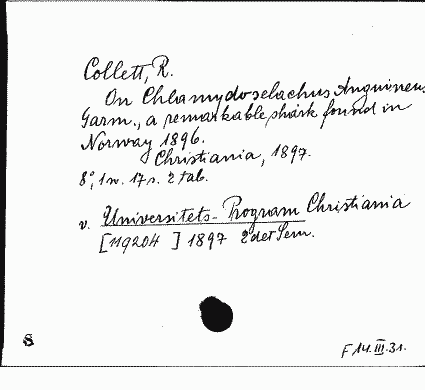 Collett, R.
On Chlamydoselachus Anguineus
Garm., a remarkable shark found in
Norway 1896.
Christiania, 1897.
8°, 1 n. 17 s. 2 tab.
v. Universitets-Program Christiania
[119204 ] 1897 2det Sem.
8
F 14.III.31.